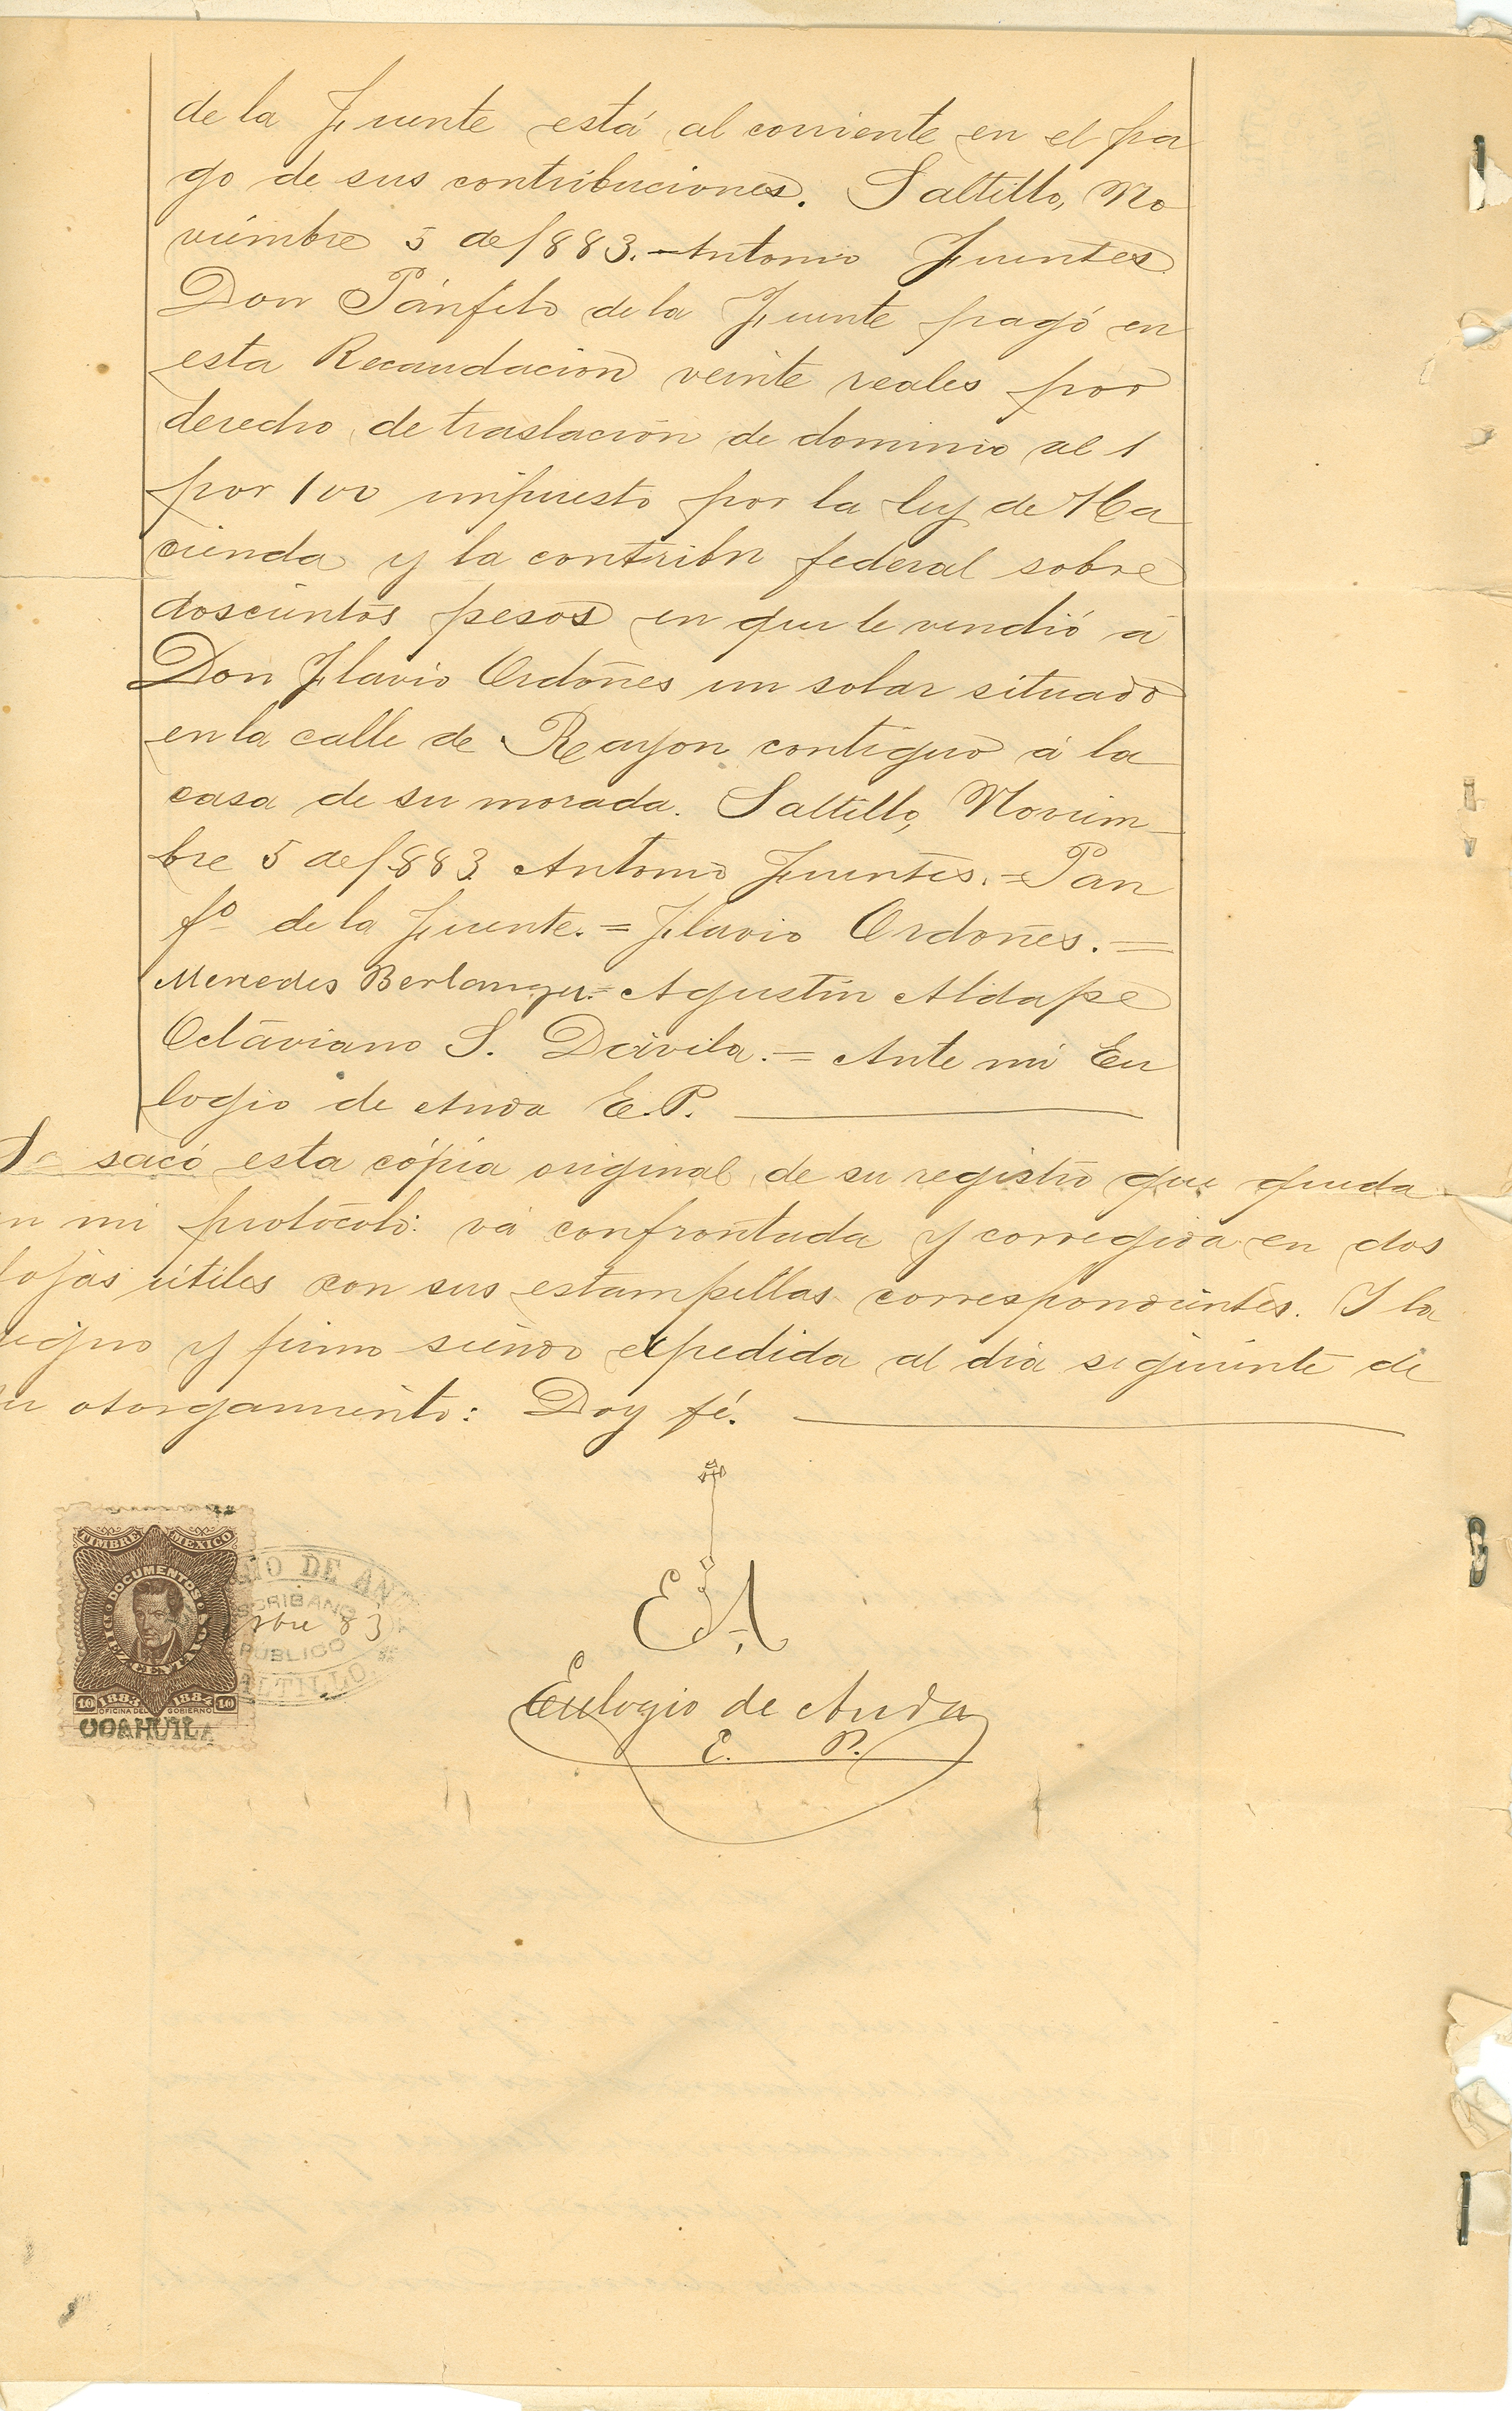 de la Fuente está al corriente en el pa
go de sus contribuciones. Saltillo, No
viembre 5 de 1883.-Antonio Fuentes
Don Pánfilo de la Fuente pagó en
esta Recaudacion veinte reales por
derecho de traslacion de dominio al 1
por 100 impuesto por la ley de Ha
cienda y la contribn federal sobre
doscientos pesos en que le vendió á
Don Flavio Ordoñes un solar situado
en la calle de Rayon contiguo á la
casa de su morada. Saltillo, Noviem-
bre 5 de 1883 Antonio Fuentes.=Pan
fo de la Fuente.=Flavio Ordoñes.=
Menedes Berlanga.=Agustin Aldape
Octaviano S. Dávila.=Ante mi Eu
logio de Anda E.P.
Se sacó esta cópia original de su registro que queda
en mi protocolo: vá confrontada y corregida en dos
fojas útiles con sus estampillas correspondientes. Y la
signo y firmo siendo expedida al dia siguiente de
su otorgamiento: Doy fé.
TIMBRE MEXICO
DOCUMENTOS
DIEZ CENTAVOS
10 1883 1884 10
OFICINA DEL GOBIERNO
COAHUILA
IO DE AND
SCRIBANO
bre 83
PUBLICO
ALTILLO
EA
Eulogio de Anda
E. P.